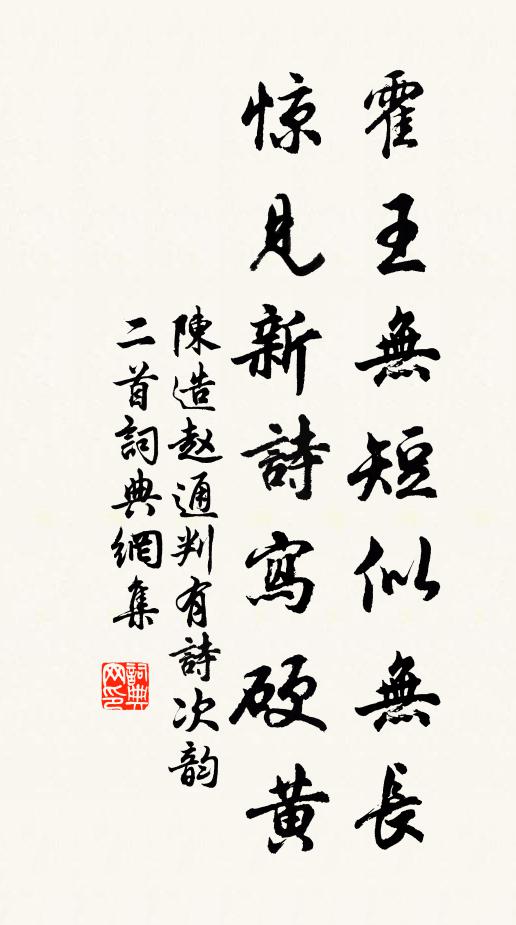 霍王無短似無長
惊見新詩寫硬黃
陳造赵通判有詩次韵
二首詞典網集
詞典網印